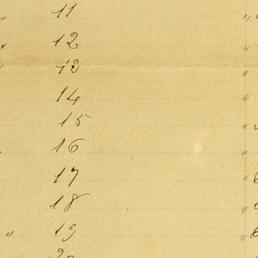 " 11 "
" 12 "
" 13 "
14 "
15 "
16 "
17 "
18 "
" 19 "